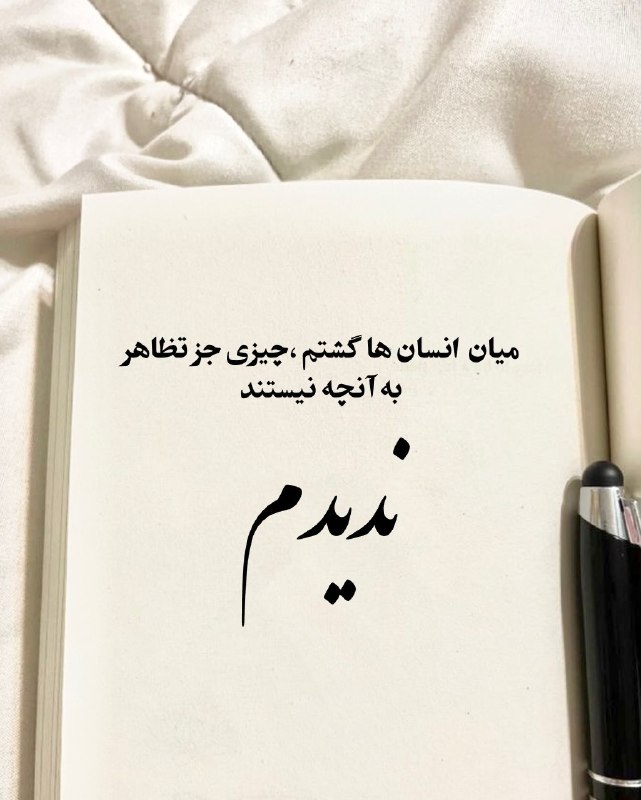 میان انسان ها گشتم ،چیزی جز تظاهر
به آنچه نیستند
ندیدم